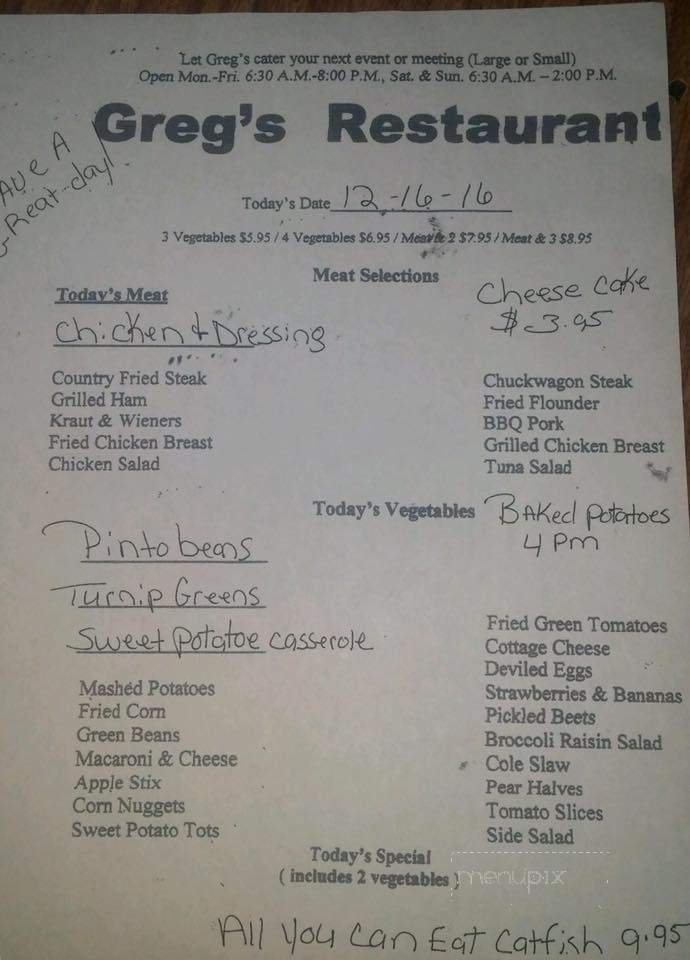 Let Greg's cater your next event or meeting (Large or Small)
Open Mon.-Fri. 6:30 A.M.-8:00 P.M., Sat. & Sun. 6:30 A.M. – 2:00 P.M.
Greg's Restaurant
ave A
Great day!
Today's Date 12-16-16
3 Vegetables $5.95 / 4 Vegetables $6.95 / Meat & 2 $7.95 / Meat & 3 $8.95
Meat Selections
Today's Meat
Chicken & Dressing
Cheese cake
$3.95
Country Fried Steak
Grilled Ham
Kraut & Wieners
Fried Chicken Breast
Chicken Salad
Chuckwagon Steak
Fried Flounder
BBQ Pork
Grilled Chicken Breast
Tuna Salad
Today's Vegetables
BAKed Potatoes
4 Pm
Pinto beans
Turnip Greens
Sweet Potatoe casserole
Mashed Potatoes
Fried Corn
Green Beans
Macaroni & Cheese
Apple Stix
Corn Nuggets
Sweet Potato Tots
Fried Green Tomatoes
Cottage Cheese
Deviled Eggs
Strawberries & Bananas
Pickled Beets
Broccoli Raisin Salad
Cole Slaw
Pear Halves
Tomato Slices
Side Salad
Today's Special
( includes 2 vegetables )
menupix
All You Can Eat Catfish 9.95